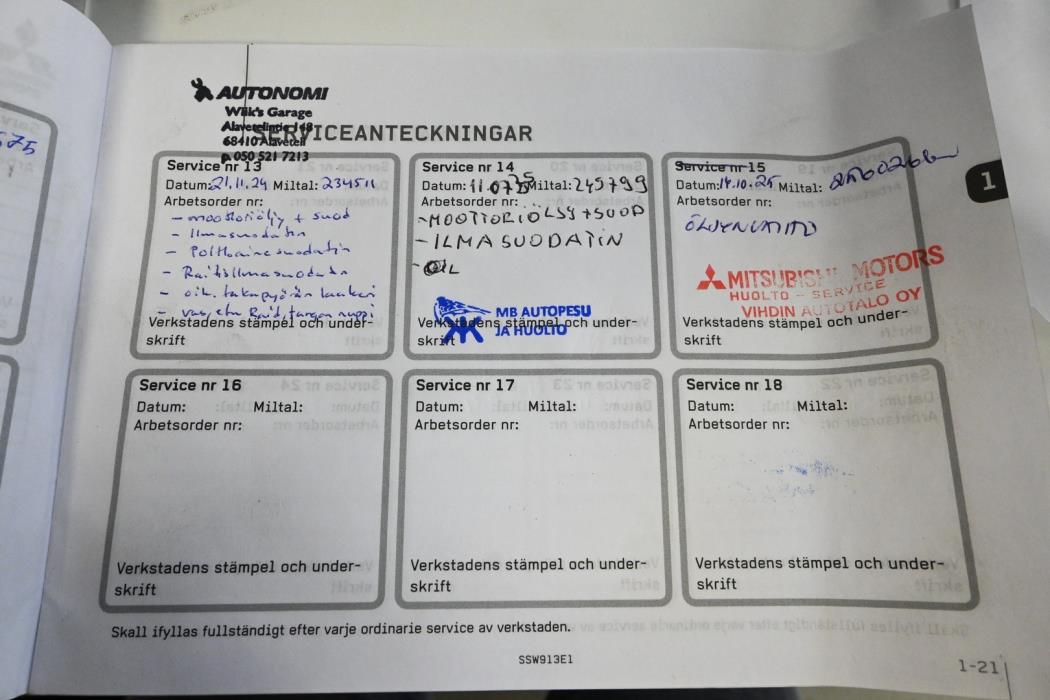 575
AUTONOMI
Wiik's Garage
Alavetelintie 148
68410 Alaveteli
p. 050 521 7213
SERVICEANTECKNINGAR
1
Service nr 13
Datum: 21.11.24 Miltal: 234511
Arbetsorder nr:
- moottoriöljy + suod
- Ilmasuodatin
- Polttoainesuodatin
- Raitisilmasuodatin
- oik. takapyörän laakeri
- vas. etu Raid.tangon nuppi
Verkstadens stämpel och under-
skrift
Service nr 14
Datum: 11.07.25 Miltal: 245799
Arbetsorder nr:
- MOOTTORIÖLJY + SUOD
- ILMASUODATIN
MB AUTOPESU
JA HUOLTO
Verkstadens stämpel och under-
skrift
Service nr 15
Datum: 14.10.25 Miltal:
Arbetsorder nr:
ÖLJYNVAIHTO
MITSUBISHI MOTORS
HUOLTO - SERVICE
VIHDIN AUTOTALO OY
Verkstadens stämpel och under-
skrift
Service nr 16
Datum: Miltal:
Arbetsorder nr:
Verkstadens stämpel och under-
skrift
Service nr 17
Datum: Miltal:
Arbetsorder nr:
Verkstadens stämpel och under-
skrift
Service nr 18
Datum: Miltal:
Arbetsorder nr:
Verkstadens stämpel och under-
skrift
Skall ifyllas fullständigt efter varje ordinarie service av verkstaden.
SSW913E1
1-21